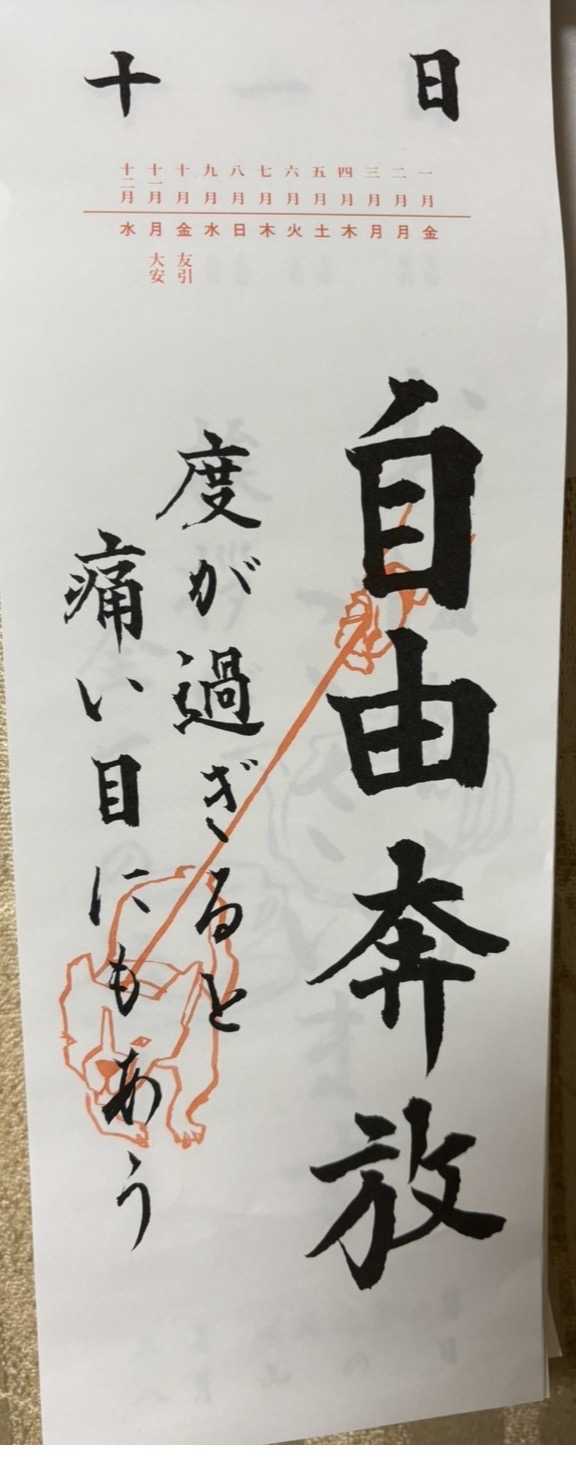 十日
十二月 十一月 十月 九月 八月 七月 六月 五月 四月 三月 二月 一月
水 月 金 水 日 木 火 土 木 月 月 金
大安 友引
自由奔放
度が過ぎると
痛い目にもあう